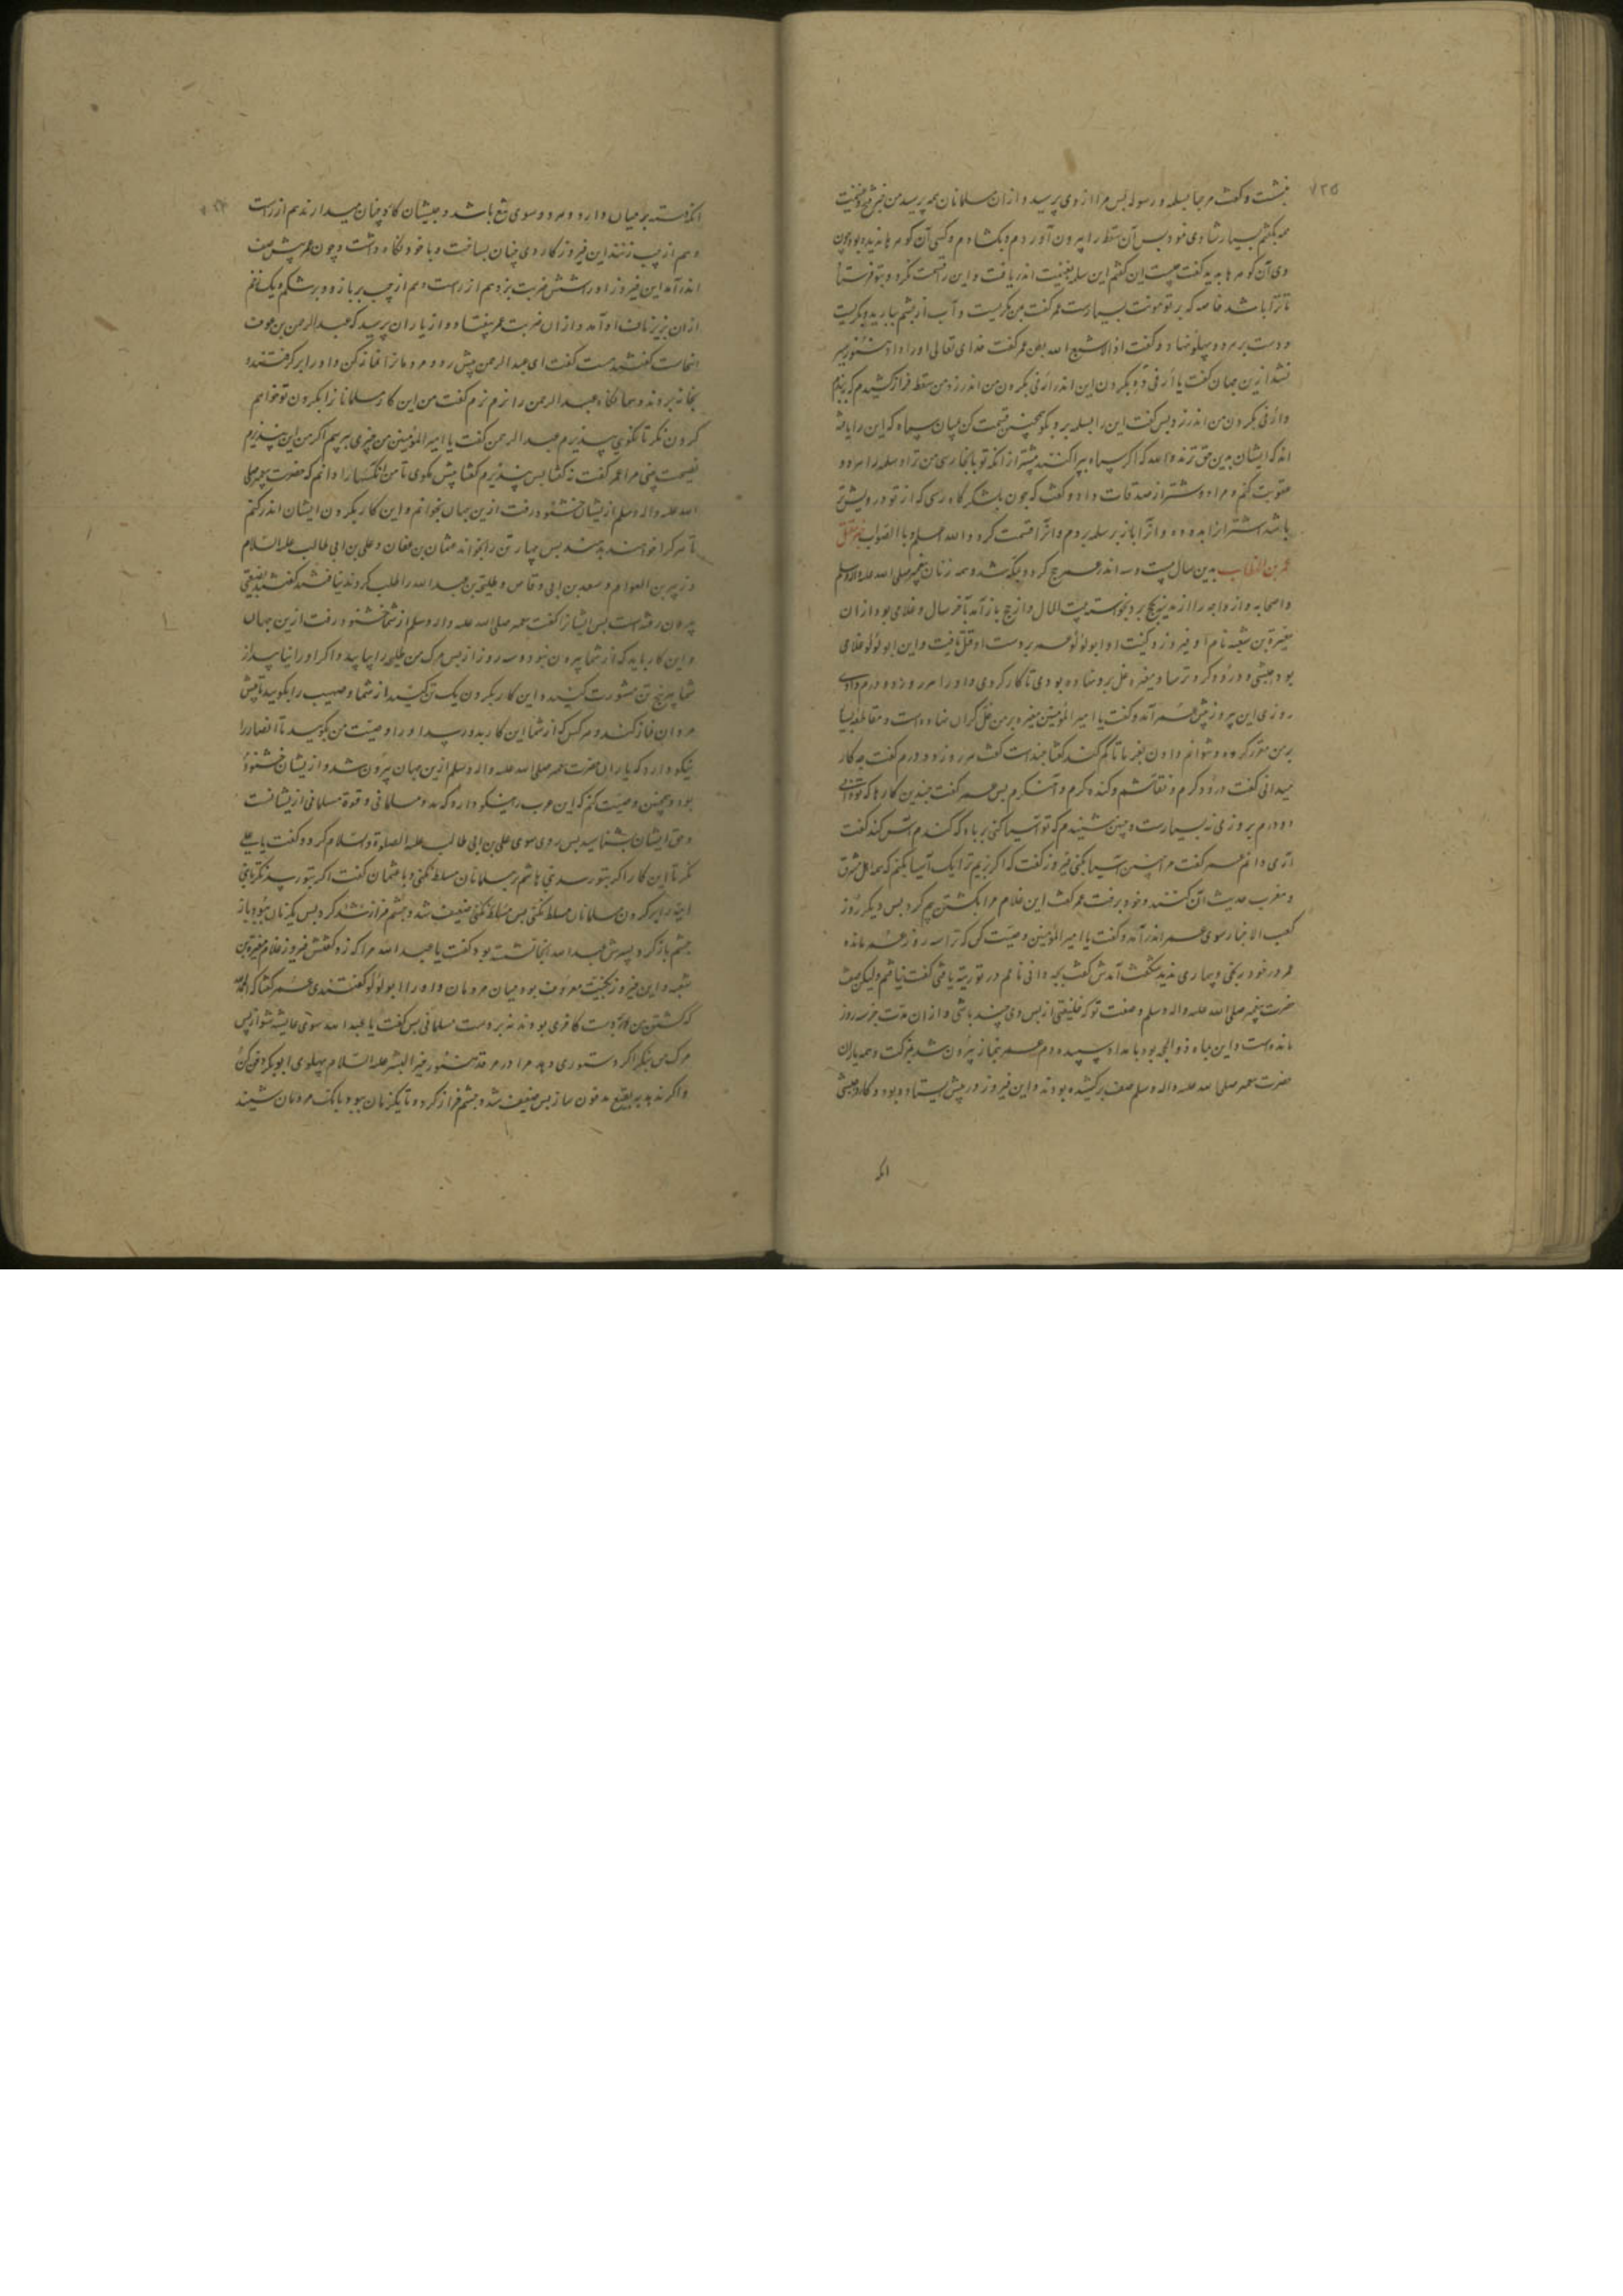 ۷۲۵
بنشست و گفت مرحبا بسلمه و رسوله پس مرا از وی پرسید و از ان مسلمانان همه پرسید من خبر فتح و غنیمت
همه بگفتم بسیار شادی نمود پس آن سقط را بیرون آوردم و بکشادم و کسی آن گوهرها ندیده بود چون
وی آن گوهرها بدید گفت چیست این گفتم این سلمه بغنیمت اندر یافت و این را قسمت نکرد و بتو فرستاد
تا ترا باشد خاصه که بر تو مونت بسیارست عمر گفت بمن نگریست و آب از چشم ببارید و بگریست
و دست بر هر دو پهلو نهاد و گفت اذا لا اشبع الله بطن عمر گفت خدای تعالی او را داد هنوز سیر
نشد ازین جهان گفت یا أرفی
وأرفی بگردن من اندر زد پس گفت این را بسلمه بر و بگو همچنین قسمت کن میان سپاه که این را یافته
اند که ایشان بدین حق ترند والله که اگر سپاه بپراکنند پیشتر از انکه تو بانجا رسی من ترا و سلمه را هر دو
عقوبت کنم و مرا دو شتر از صدقات داد و گفت که چون بلشکرگاه رسی که از تو درویش تر
باشد اشتران را بدو ده و انرا باز بر سلمه بردم و انرا قسمت کرد والله اعلم بالصواب خبر مقتل
عمر بن الخطاب بدین سال بیست و سه اندر عمر حج کرد و بمکه شد و همه زنان پیغمبر صلی الله علیه واله وسلم
و اصحابه و ازواجه را از مدینه بحج برد بخواسته بیت المال و از حج باز آمد بآخر سال و غلامی بود از ان
مغیرة بن شعبه نام او فیروز و کنیت او ابو لؤلؤ عمر بر دست او قتل یافت و این ابو لؤلؤ غلامی
بود حبشی و درودگر و ترسا و مغیره غل برو نهاده بودی تا کار کردی و او را هر روز دو درم دادی
روزی این پیروز پیش عمر آمد و گفت یا امیر المؤمنین مغیره بر من غل گران نهاده است و مقاطعه بسیار
بر من مقرر کرده و نتوانم دادن بفرما تا کم کند گفتا چند است گفت هر روز دو درم گفت چه کار
میدانی گفت درودگرم و نقاشم و کنده گرم و آهنگرم پس عمر گفت چندین کارها که تو دانی
دو درم بروزی نه بسیارست و چنین شنیدم که تو آسیا کنی بر باد که گندم آس کند گفت
آری دانم عمر گفت مرا چنین آسیا بکن فیروز گفت که اگر بزیم ترا یک آسیا بکنم که همه اهل مشرق
و مغرب حدیث آن کنند و خود برفت عمر گفت این غلام مرا بکشتن بیم کرد پس دیگر روز
کعب الاخبار سوی عمر اندر آمد و گفت یا امیر المؤمنین وصیت کن که ترا سه روز عمر مانده
عمر در خود رنجی و بیماری ندید شگفت آمدش گفت بچه دانی نامم در توریة یافتی گفت نیافتم ولیکن صفت
حضرت پیغمبر صلی الله علیه واله وسلم و صفت تو که خلیفتی از پس وی چند باشی و از ان مدت جز سه روز
مانده است و این ماه ذو الحجه بود بامداد سپیده دم عمر بنماز بیرون شد بمزکت و همه یاران
حضرت پیغمبر صلی الله علیه واله وسلم صف برکشیده بودند و این فیروز در پیش ایستاده بود و کارد حبشی
انکه
انکه دسته بر میان دارد و هر دو سوی تیغ باشد و حبشیان کارد چنان میدارند هم از راست
و هم از چپ زنند این فیروز کاردی چنان بساخت و با خود نگاه داشت و چون عمر پیش صف
اندر آمد این فیروز او را شش ضربت بزد هم از راست و هم از چپ بر بازو و بر شکم و یک زخم
از ان بزیر ناف او آمد و از ان ضربت عمر بیفتاد و از یاران پرسید که عبد الرحمن بن عوف
اینجاست گفتند هست گفت ای عبد الرحمن پیش رو و مردمانرا نماز کن و او را برگرفتند و
بخانه بردند و همانگاه عبد الرحمن را نزم نزم گفت من این کار مسلمانان را بگردن تو خواهم
کردن نگر تا نگویی نپذیرم عبد الرحمن گفت یا امیر المؤمنین من چیزی بپرسم اگر من این بپذیرم
نصیحت بینی مرا عمر گفت نه گفتا پس نپذیرم گفتا پیش مگوی تا من آنکسها را دانم که حضرت پیغمبر صلی
الله علیه واله وسلم از یشان خشنود رفت ازین جهان بخوانم و این کار بگردن ایشان اندر کنم
تا هر کرا خواهند بدهند پس چهار تن را بخواند عثمان بن عفان و علی بن ابی طالب علیه السلام
و زبیر بن العوام و سعد بن ابی وقاص و طلحة بن عبد الله را طلب کردند نیافتند گفتند بضیعتی
بیرون رفته است پس ایشانرا گفت پیغمبر صلی الله علیه واله وسلم از شما خشنود رفت ازین جهان
و این کار باید که از شما بیرون نبود و سه روز از پس مرگ من طلحه را بپایید و اگر او را نیابید از
شما پنج تن مشورت کنید و این کار بگردن یک تن کنید از شما و صهیب را بگویید تا پیش
مردمان نماز کند و هر کس که از شما این کار بدو رسد او را وصیت من بگویید تا انصار را
نیکو دارد که یاران حضرت پیغمبر صلی الله علیه واله وسلم ازین جهان بیرون شد و از یشان خشنود
بود و همچنین وصیت کنم که این عرب را نیکو دارد که مدد مسلمانی و قوة مسلمانی از یشانست
و حق ایشان بشناسید پس روی سوی علی بن ابی طالب علیه الصلوة والسلام کرد و گفت یا علی
نگر تا این کار اگر بتو رسد بنی هاشم بر مسلمانان مسلط نکنی و با عثمان گفت اگر بتو رسد نگر تا بنی
امیه را بر گردن مسلمانان مسلط نکنی پس ضعیف شد و چشم فراز شد کرد پس یکزمان ببود باز
چشم باز کرد پسرش عبد الله آنجا نشسته بود گفت یا عبد الله مرا که زد گفتش فیروز غلام مغیرة بن
شعبه و این فیروز بکنیت معروف بود میان مردمان و او را ابو لؤلؤ گفتندی عمر گفتا که الحمد لله
که کشتن من بر دست کافری بود نه بر دست مسلمانی پس گفت یا عبد الله سوی عایشه شو از پس
مرگ من بنگر اگر دستوری دهد مرا در مرقد منور خیر البشر علیه السلام پهلوی ابو بکر دفن کن
و اگر ندهد ببقیع مدفون ساز پس ضعیف شد و چشم فراز کرد و تا یکزمان ببود بانگ مردمان شنید